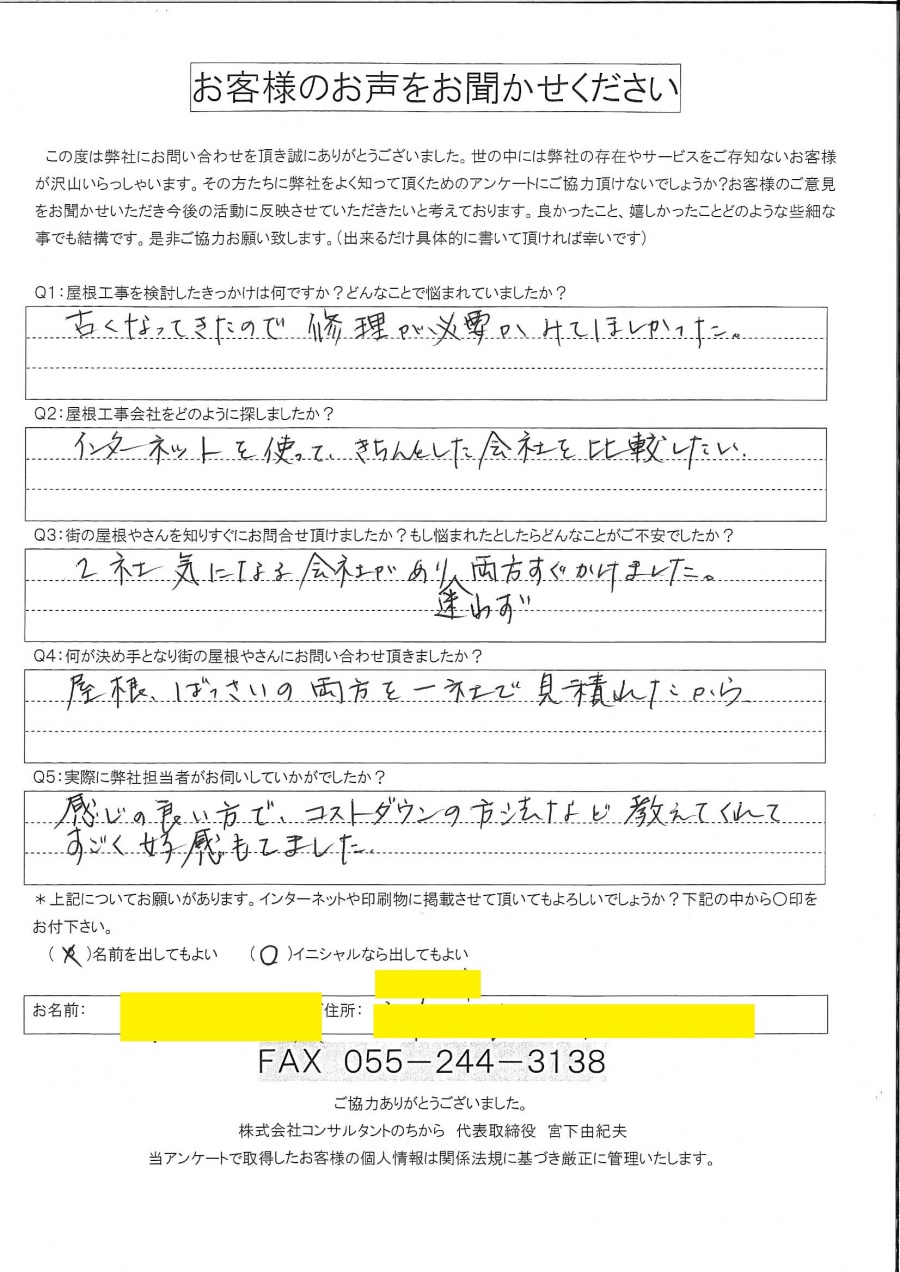 お客様のお声をお聞かせください
この度は弊社にお問い合わせを頂き誠にありがとうございました。世の中には弊社の存在やサービスをご存知ないお客様
が沢山いらっしゃいます。その方たちに弊社をよく知って頂くためのアンケートにご協力頂けないでしょうか?お客様のご意見
をお聞かせいただき今後の活動に反映させていただきたいと考えております。良かったこと、嬉しかったことどのような些細な
事でも結構です。是非ご協力お願い致します。(出来るだけ具体的に書いて頂ければ幸いです)
Q1:屋根工事を検討したきっかけは何ですか?どんなことで悩まれていましたか?
古くなってきたので修理が必要かみてほしかった。
Q2:屋根工事会社をどのように探しましたか?
インターネットを使って、きちんとした会社を比較したい.
Q3:街の屋根やさんを知りすぐにお問合せ頂けましたか?もし悩まれたとしたらどんなことがご不安でしたか?
2社気になる会社があり、両方すぐかけました。
迷わず
Q4:何が決め手となり街の屋根やさんにお問い合わせ頂きましたか?
屋根、ばっさいの両方を一社で見積れたから
Q5:実際に弊社担当者がお伺いしていかがでしたか?
感じの良い方で、コストダウンの方法など教えてくれて
すごく好感もてました.
*上記についてお願いがあります。インターネットや印刷物に掲載させて頂いてもよろしいでしょうか?下記の中から○印を
お付下さい。
(✕)名前を出してもよい (○)イニシャルなら出してもよい
お名前: ご住所:
FAX 055-244-3138
ご協力ありがとうございました。
株式会社コンサルタントのちから 代表取締役 宮下由紀夫
当アンケートで取得したお客様の個人情報は関係法規に基づき厳正に管理いたします。